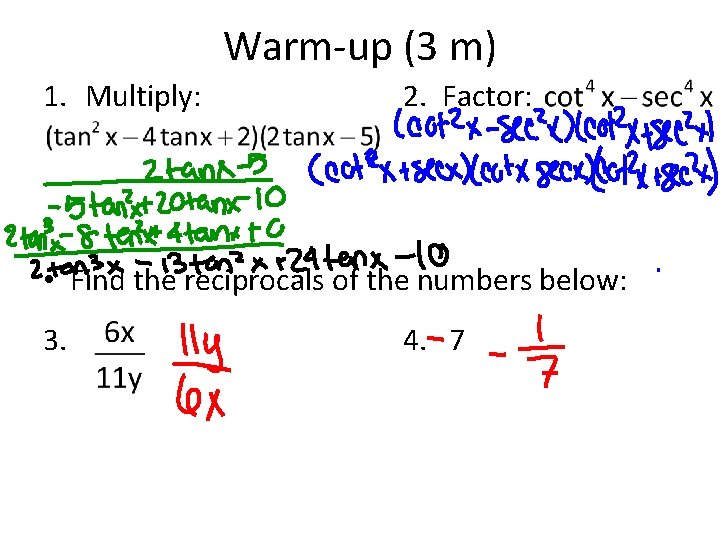 Warm-up (3 m)
1. Multiply:
(tan² x − 4 tan x + 2)(2 tan x − 5)
2tanx-5
-5tan²x+20tanx-10
2tan³x-8tan²x+4tanx+0
2tan³x-13tan²x+24tanx-10
2. Factor: cot⁴ x − sec⁴ x
(cot²x-sec²x)(cot²x+sec²x)
(cot x+secx)(cotx secx)(cot²x+sec²x)
Find the reciprocals of the numbers below:
3. 6x/11y 11y/6x
4. -7 -1/7